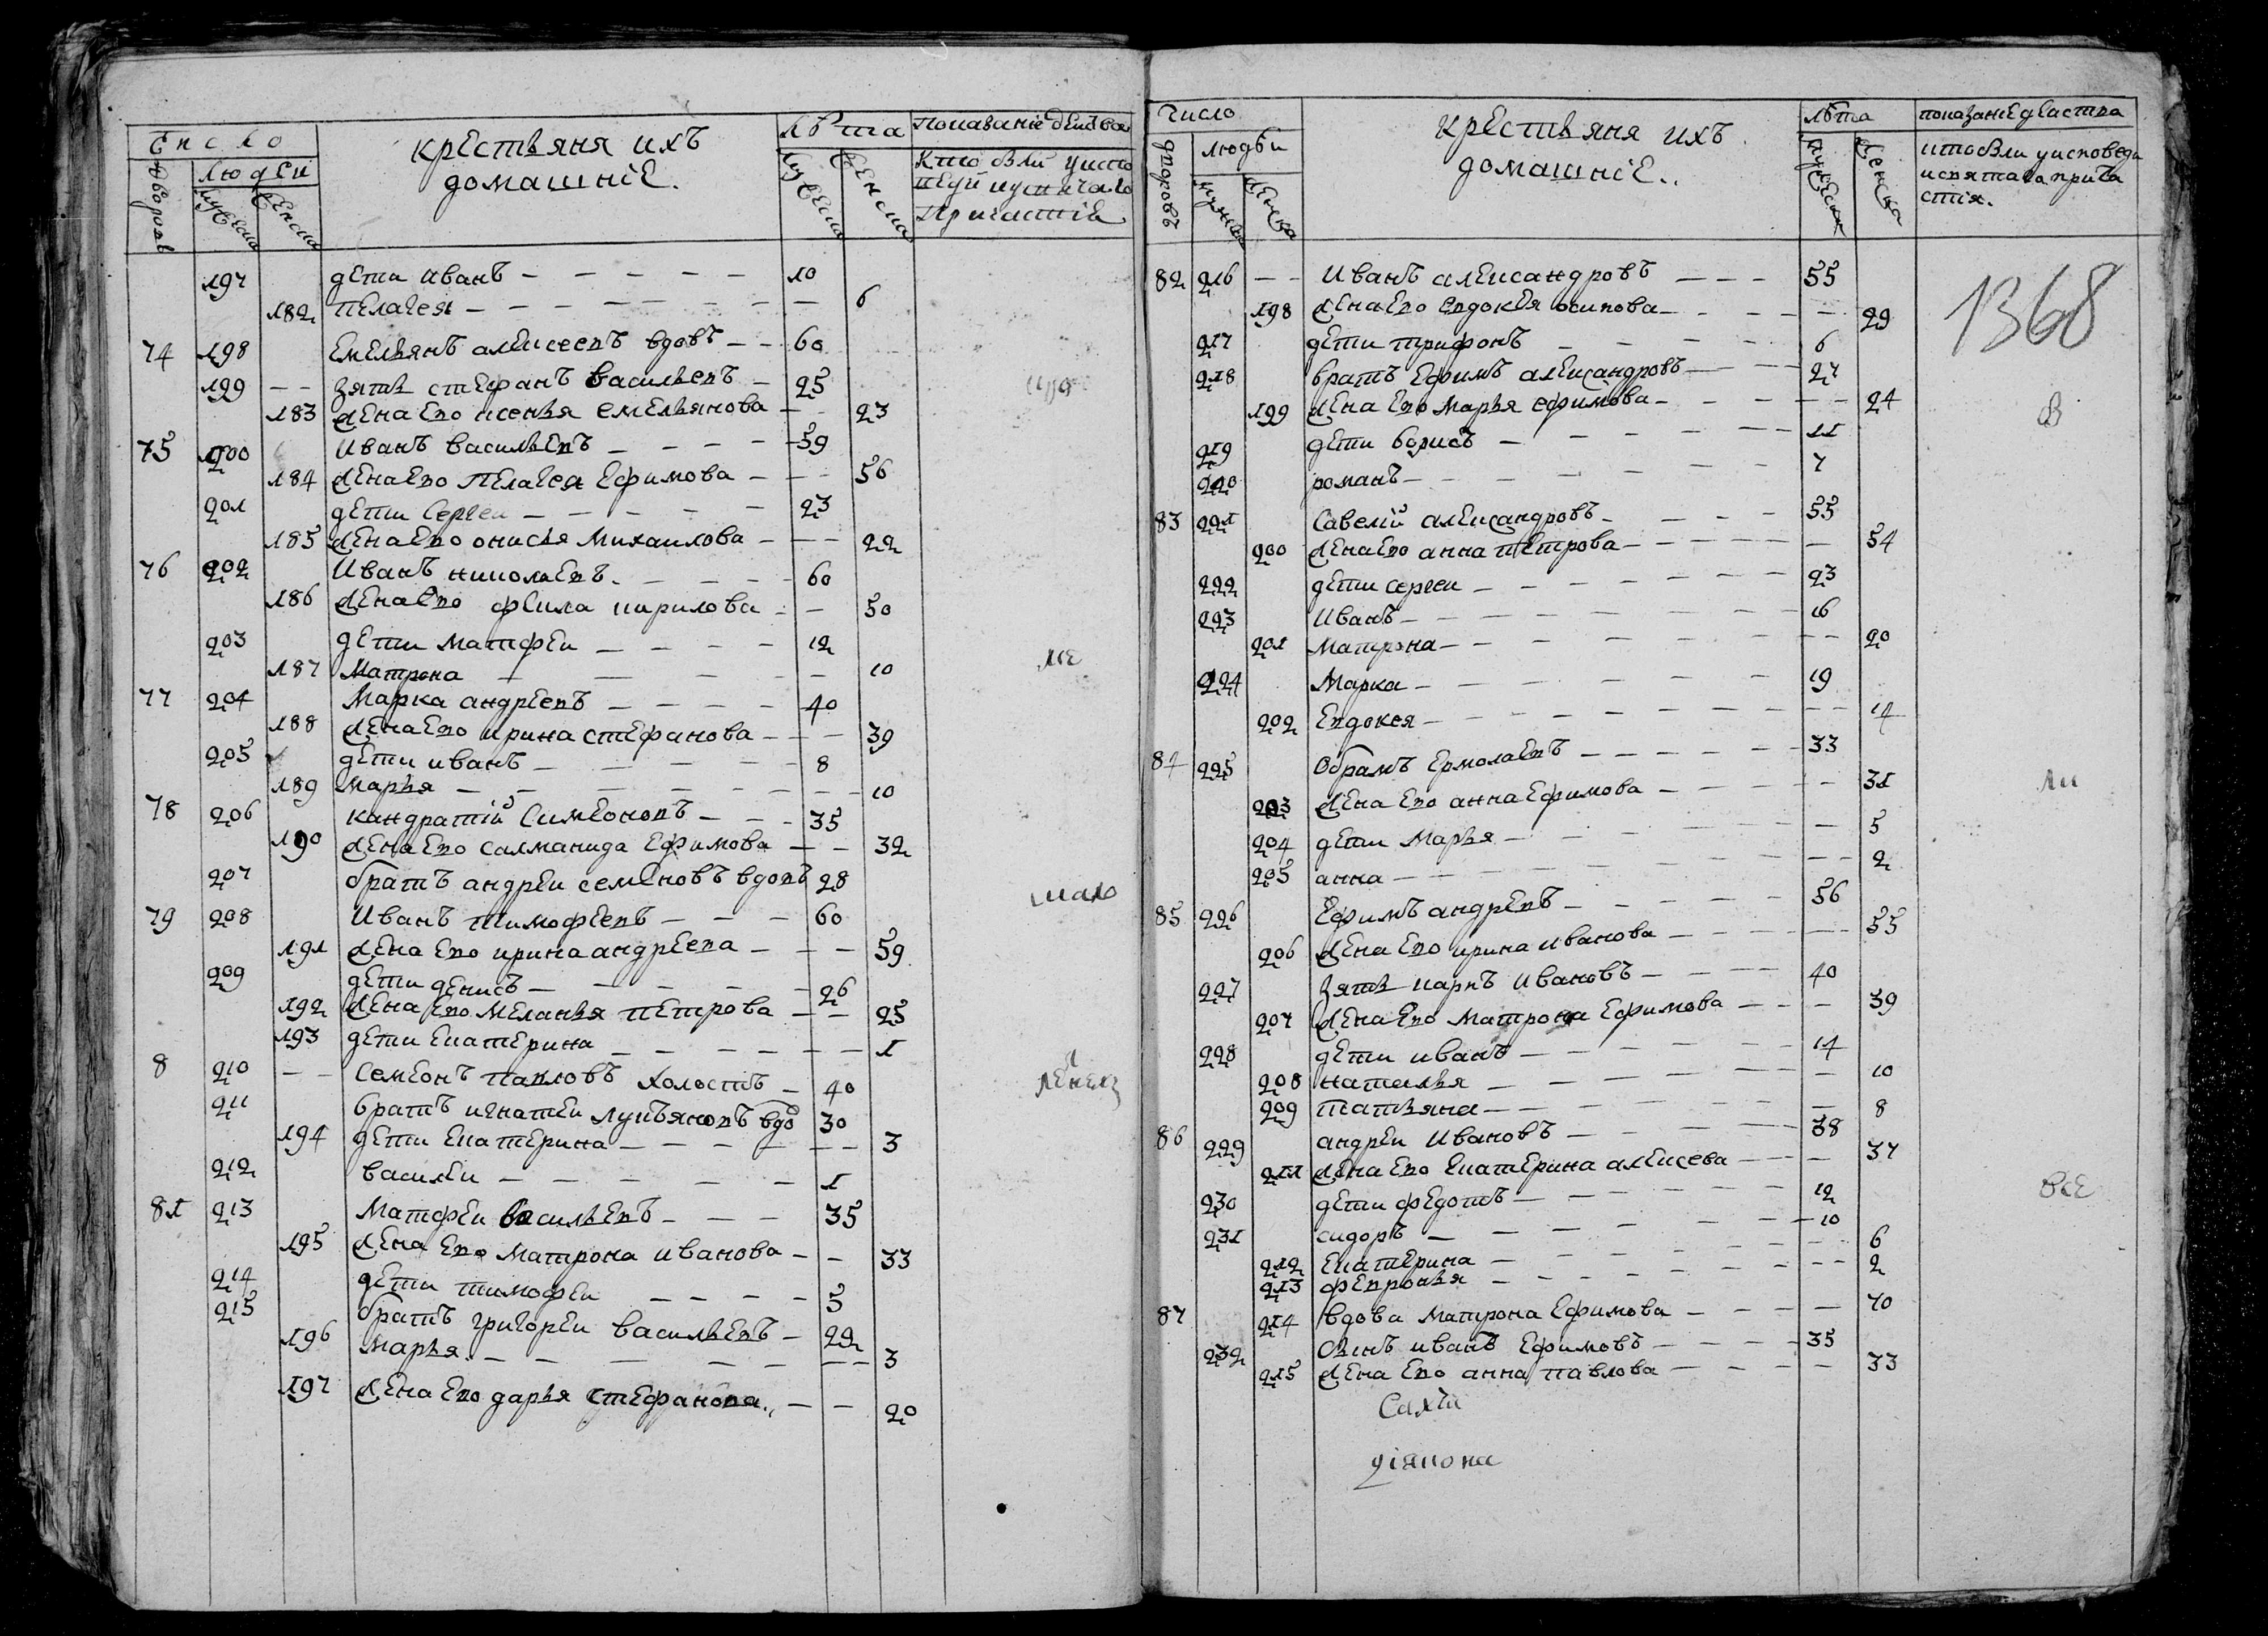 Число
Людей
Дворовъ
Мужеска
Женска
крестьяня ихъ
домашніе.
Лѣта
Мужеска
Женска
показаніе действа
Кто былъ у испо
ведй и у святаго
Причастія
197 дети иванъ — 10
182 пелагея — 6
74 198 Емельянъ алексеевъ вдовъ — 60
199 — зять стефанъ васильевъ — 25
183 жена ево ксенья емельянова — 23
75 200 Иванъ васильевъ — 59
184 жена ево пелагея Ефимова — 56
201 дети Сергеи — 23
185 жена ево онисья михаилова — 22
76 202 Иванъ николаевъ — 60
186 жена ево фекла кирилова — 50
203 дети матфеи — 12
187 Матрона — 10
77 204 Марка андреевъ — 40
188 жена ево ирина стефанова — 39
205 дети иванъ — 8
189 Марья — 10
78 206 кандратій Симеоновъ — 35
190 жена ево салманида Ефимова — 32
207 братъ андреи семеновъ вдовъ 28
79 208 Иванъ тимофеевъ — 60
191 жена ево ирина андреева — 59
209 дети денисъ — 26
192 жена ево меланья петрова — 25
193 дети екатерина — 1
8 210 — семеонъ павловъ холостъ — 40
211 братъ игнатеи лукъяновъ вдо 30
194 дети екатерина — 3
212 василеи — 1
81 213 Матфеи васильевъ — 35
195 жена ево матрона иванова — 33
214 дети тимофеи — 5
215 братъ григореи васильевъ — 22
196 марья — 3
197 жена ево дарья стефанова — 20
число
людѣи
дворовъ
мужска
женска
крестьяня ихъ
домашніе.
лѣта
мужеска
женска
показаніе деиства
кто былъ у исповеди
и святаго прича
стія.
1368
82 216 — Иванъ александровъ — 55
198 жена ево евдокея осипова — 29
217 дети трифонъ — 6
218 братъ Ефимъ александровъ — 27
199 жена ево марья ефимова — 24
219 дети борисъ — 11
220 романъ — 7
83 221 Савелій александровъ — 55
200 жена ево анна петрова — 54
222 дети сергеи — 23
223 Иванъ — 16
201 матрона — 20
224 Марка — 19
202 Евдокея — 14
84 225 Обрамъ Ермолаевъ — 33
203 жена ево анна Ефимова — 31
204 дети марья — 5
205 анна — 2
85 226 Ефимъ андревъ — 56
206 жена ево ирина иванова — 55
227 зять карпъ ивановъ — 40
207 жена ево матрона Ефимова — 39
228 дети иванъ — 14
208 наталья — 10
209 татьяна — 8
86 229 андреи ивановъ — 38
211 жена ево екатерина алексева — 37
230 дети федотъ — 12
231 сидоръ — 10
212 екатерина — 6
213 февронья — 2
87 214 вдова матрона Ефимова — 70
232 сынъ иванъ Ефимовъ — 35
215 жена ево анна павлова — 33
діякона